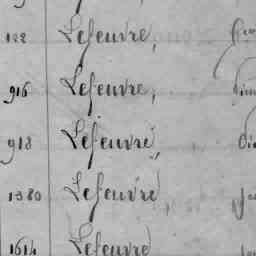 122 Lefeuvre,
916 Lefeuvre,
918 Lefeuvre,
1380 Lefeuvre,
1614 Lefeuvre